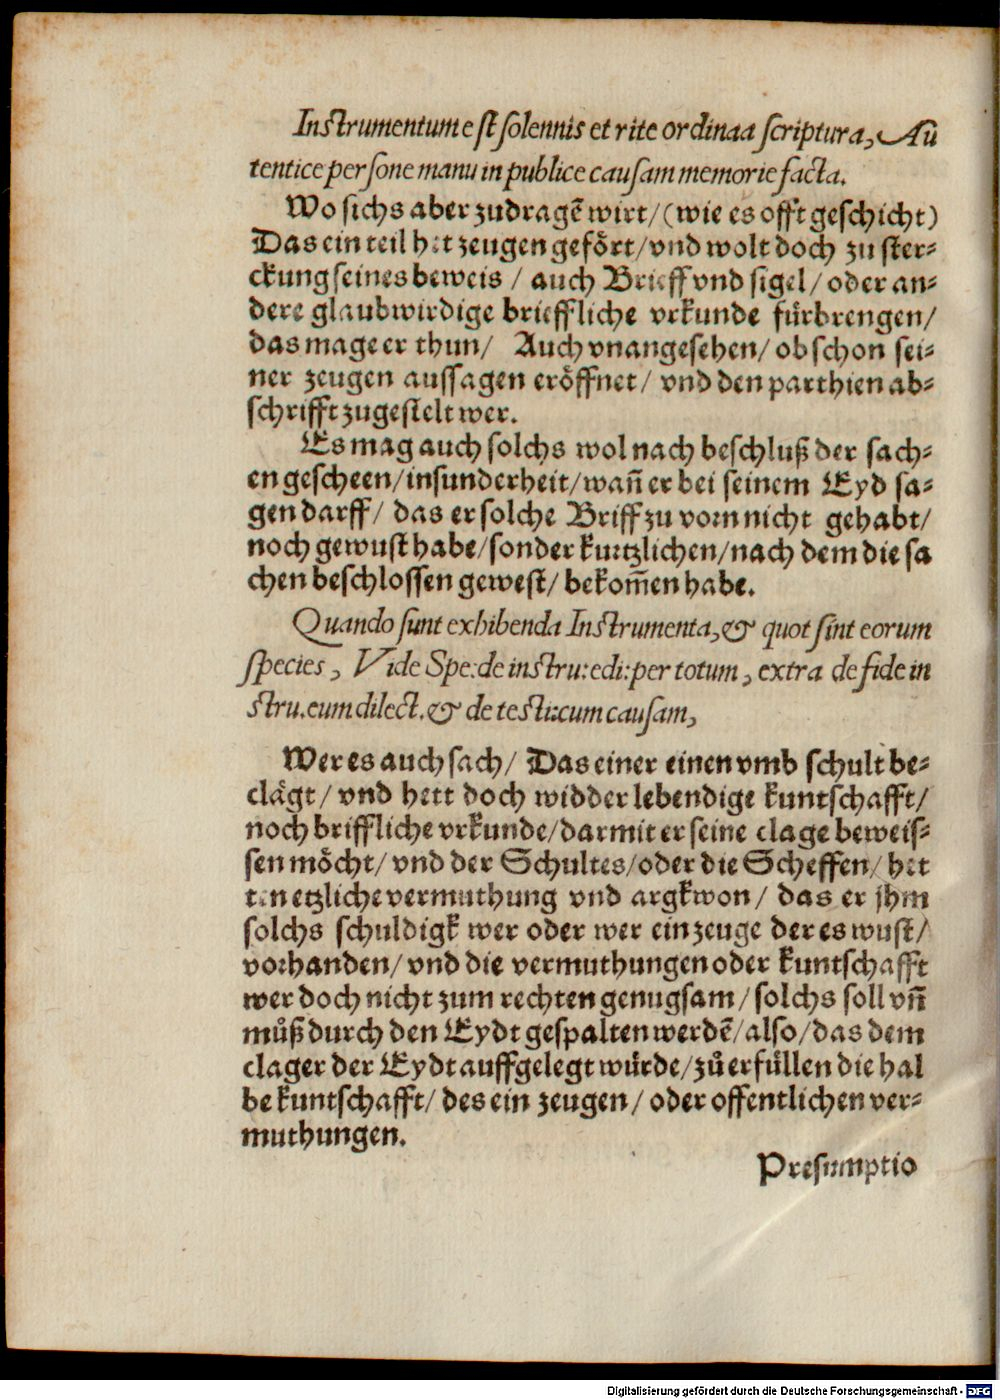 Instrumentum e st solennis et rite ordinaa scriptura, Au
tentice persone manu in publice causam memorie facta.
Wo sichs aber zudragẽ wirt/ (wie es offt geschicht)
Das ein teil het zeugen gefört/ vnd wolt doch zu ster⸗
ckung seines beweis / auch Brieff vnd sigel/ oder an⸗
dere glaubwirdige brieffliche vrkunde fürbrengen/
das mage er thun/ Auch vnangesehen/ ob schon sei⸗
ner zeugen aussagen eröffnet/ vnd den parthien ab⸗
schrifft zugestelt wer.
Es mag auch solchs wol nach beschluß der sach⸗
en gescheen/ insunderheit/ wañ er bei seinem Eyd sa⸗
gen darff/ das er solche Briff zu vorn nicht gehabt/
noch gewust habe/ sonder kurtzlichen/ nach dem die sa
chen beschlossen gewest/ bekom̃en habe.
Quando sunt exhibenda Instrumenta, & quot sint eorum
species, Vide Spe: de instru: edi: per totum, extra de fide in
stru. cum dilect. & de testi: cum causam,
Wer es auch sach/ Das einer einen vmb schult be⸗
clägt/ vnd hett doch widder lebendige kuntschafft/
noch briffliche vrkunde/ darmit er seine clage beweis⸗
sen möcht/ vnd der Schultes/ oder die Scheffen/ het
ten etzliche vermuthung vnd argkwon/ das er jhm
solchs schuldigk wer oder wer ein zeuge der es wust/
vorhanden/ vnd die vermuthungen oder kuntschafft
wer doch nicht zum rechten genugsam/ solchs soll vñ
můß durch den Eydt gespalten werdẽ/ also/ das dem
clager der Eydt auffgelegt würde/ zů erfüllen die hal
be kuntschafft/ des ein zeugen/ oder offentlichen ver⸗
muthungen.
Presumptio
Digitalisierung gefördert durch die Deutsche Forschungsgemeinschaft - DFG